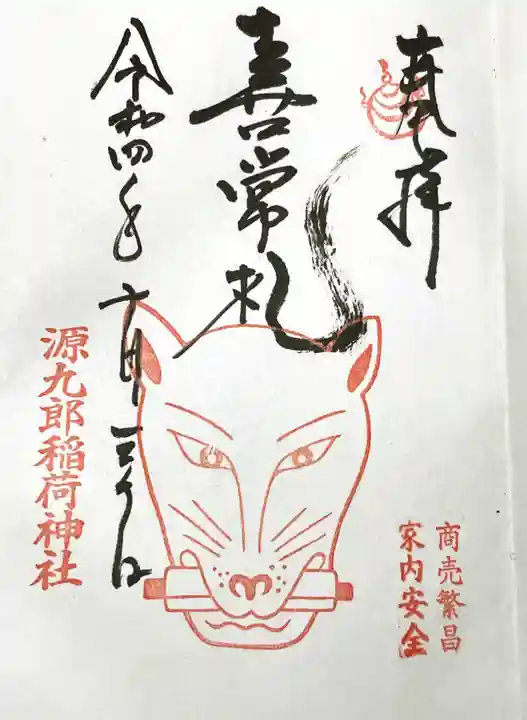 奉拝
喜常礼
令和四年十月三十日
源九郎稲荷神社
商売繁昌
家内安全